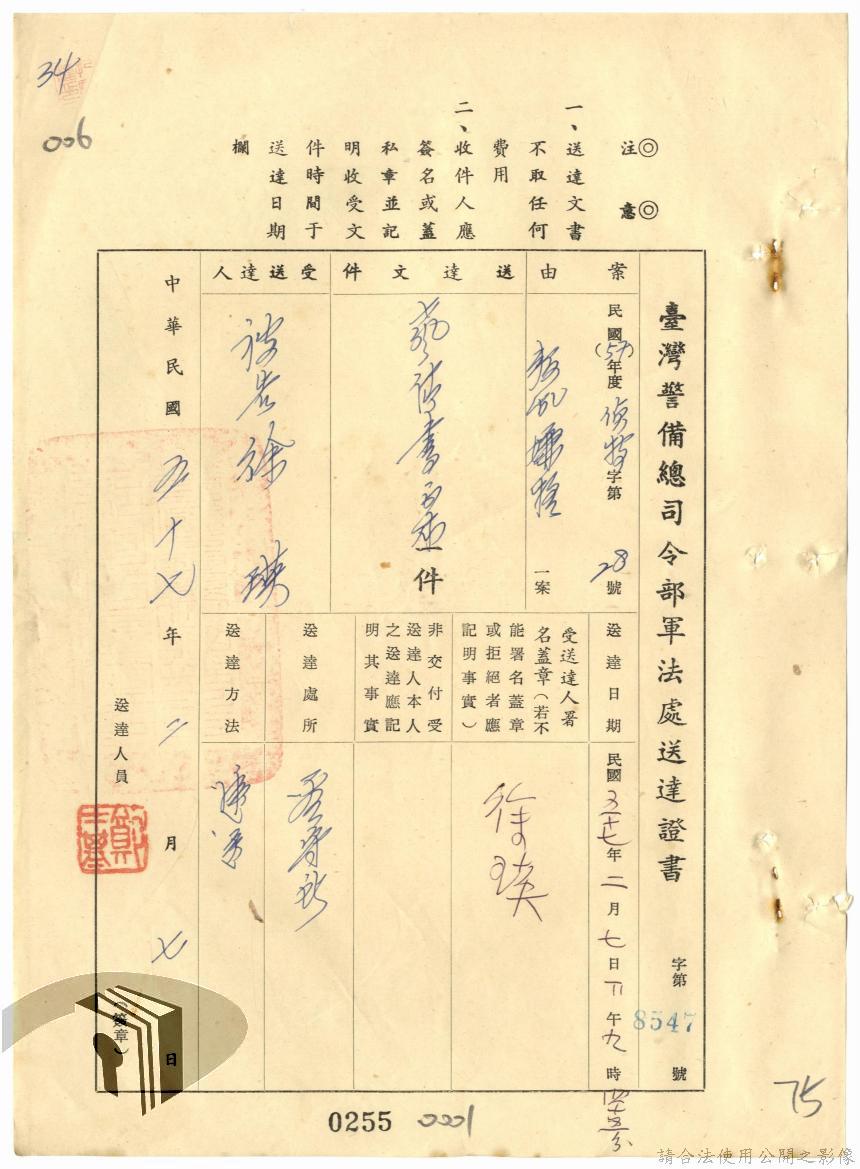 34
006
◎注意◎
一、送達文書
不取任何
費用
二、收件人應
簽名或蓋
私章並記
明收受文
件時間于
送達日期
欄
臺灣警備總司令部軍法處送達證書
字第8547號
案由
民國(57)年度偵特字第28號
叛亂嫌疑一案
送達文件
書正本一件
受送達人
被告徐瑛
送達日期
民國五十七年二月七日下午九時四十五分
受送達人署
名蓋章(若不
能署名蓋章
或拒絕者應
記明事實)
徐瑛
非交付受
送達人本人
之送達應記
明其事實
送達處所
看守所
送達方法
中華民國五十七年二月七日
送達人員
(簽章)
0255
0001
75
請合法使用公開之影像